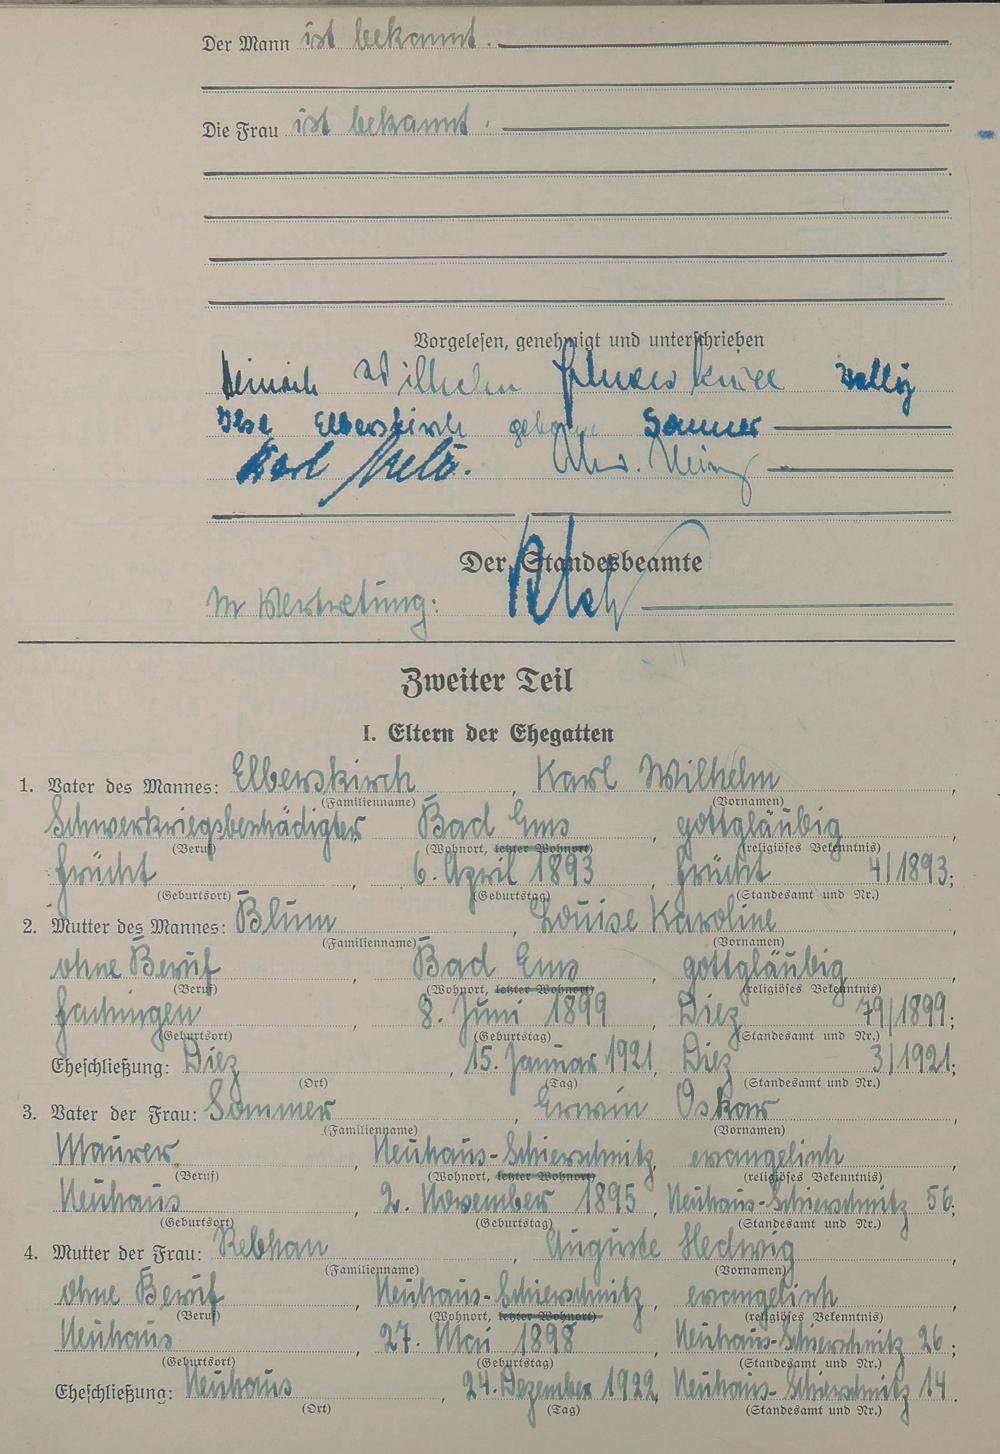 Der Mann ist bekannt.
Die Frau ist bekannt.
Vorgelesen, genehmigt und unterschrieben
Wilhelm
Ilse Elberskirch geborene Sommer
Karl
Der Standesbeamte
In Vertretung:
Zweiter Teil
I. Eltern der Ehegatten
1. Vater des Mannes: Elberskirch, Karl Wilhelm,
(Familienname) (Vornamen)
Schwerkriegsbeschädigter, Bad Ems, gottgläubig,
(Beruf) (Wohnort, letzter Wohnort) (religiöses Bekenntnis)
Frücht, 6. April 1893, Frücht 4/1893;
(Geburtsort) (Geburtstag) (Standesamt und Nr.)
2. Mutter des Mannes: Blum, Louise Karoline,
(Familienname) (Vornamen)
ohne Beruf, Bad Ems, gottgläubig,
(Beruf) (Wohnort, letzter Wohnort) (religiöses Bekenntnis)
Fachingen, 8. Juni 1899, Diez 79/1899;
(Geburtsort) (Geburtstag) (Standesamt und Nr.)
Eheschließung: Diez, 15. Januar 1921, Diez 3/1921;
(Ort) (Tag) (Standesamt und Nr.)
3. Vater der Frau: Sommer, Erwin Oskar,
(Familienname) (Vornamen)
Maurer, Neuhaus-Schierschnitz, evangelisch,
(Beruf) (Wohnort, letzter Wohnort) (religiöses Bekenntnis)
Neuhaus, 2. November 1895, Neuhaus-Schierschnitz 56;
(Geburtsort) (Geburtstag) (Standesamt und Nr.)
4. Mutter der Frau: Rebhan, Auguste Hedwig,
(Familienname) (Vornamen)
ohne Beruf, Neuhaus-Schierschnitz, evangelisch,
(Beruf) (Wohnort, letzter Wohnort) (religiöses Bekenntnis)
Neuhaus, 27. Mai 1898, Neuhaus-Schierschnitz 26;
(Geburtsort) (Geburtstag) (Standesamt und Nr.)
Eheschließung: Neuhaus, 24. Dezember 1922, Neuhaus-Schierschnitz 14.
(Ort) (Tag) (Standesamt und Nr.)